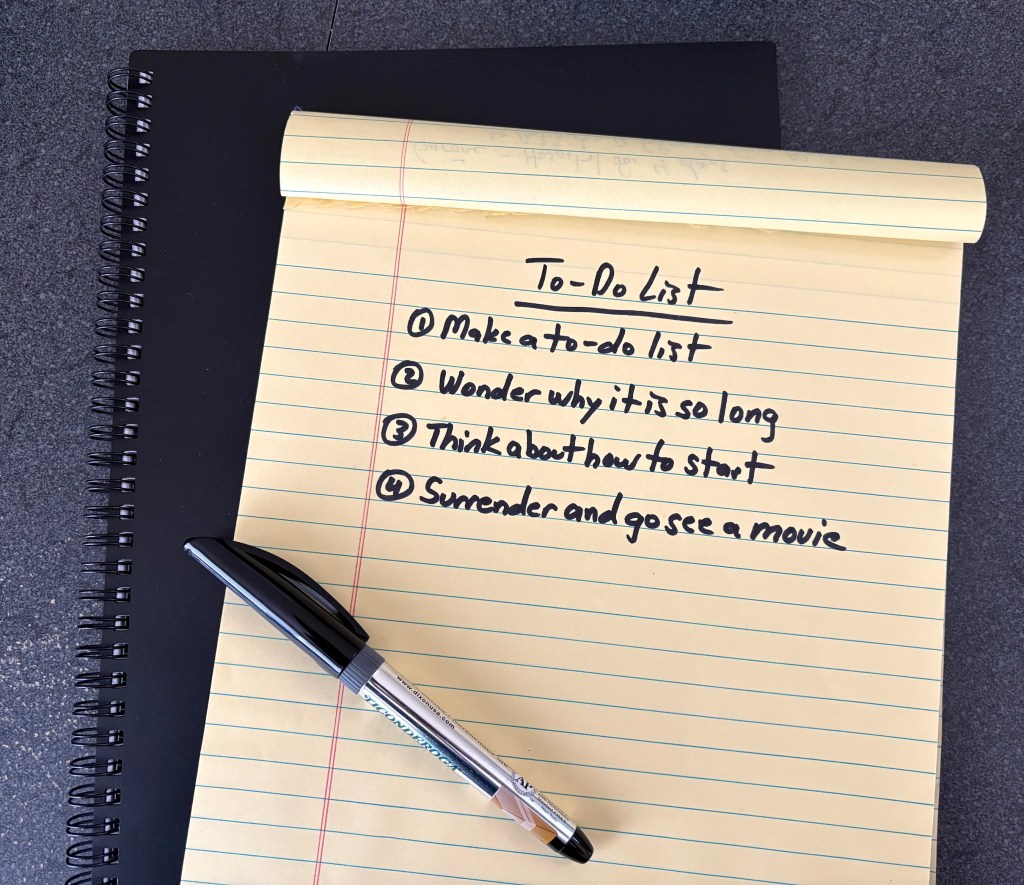 To-Do List
① Make a to-do list
② Wonder why it is so long
③ Think about how to start
④ Surrender and go see a movie
www.dixonusa.com
TICONDEROGA
AP